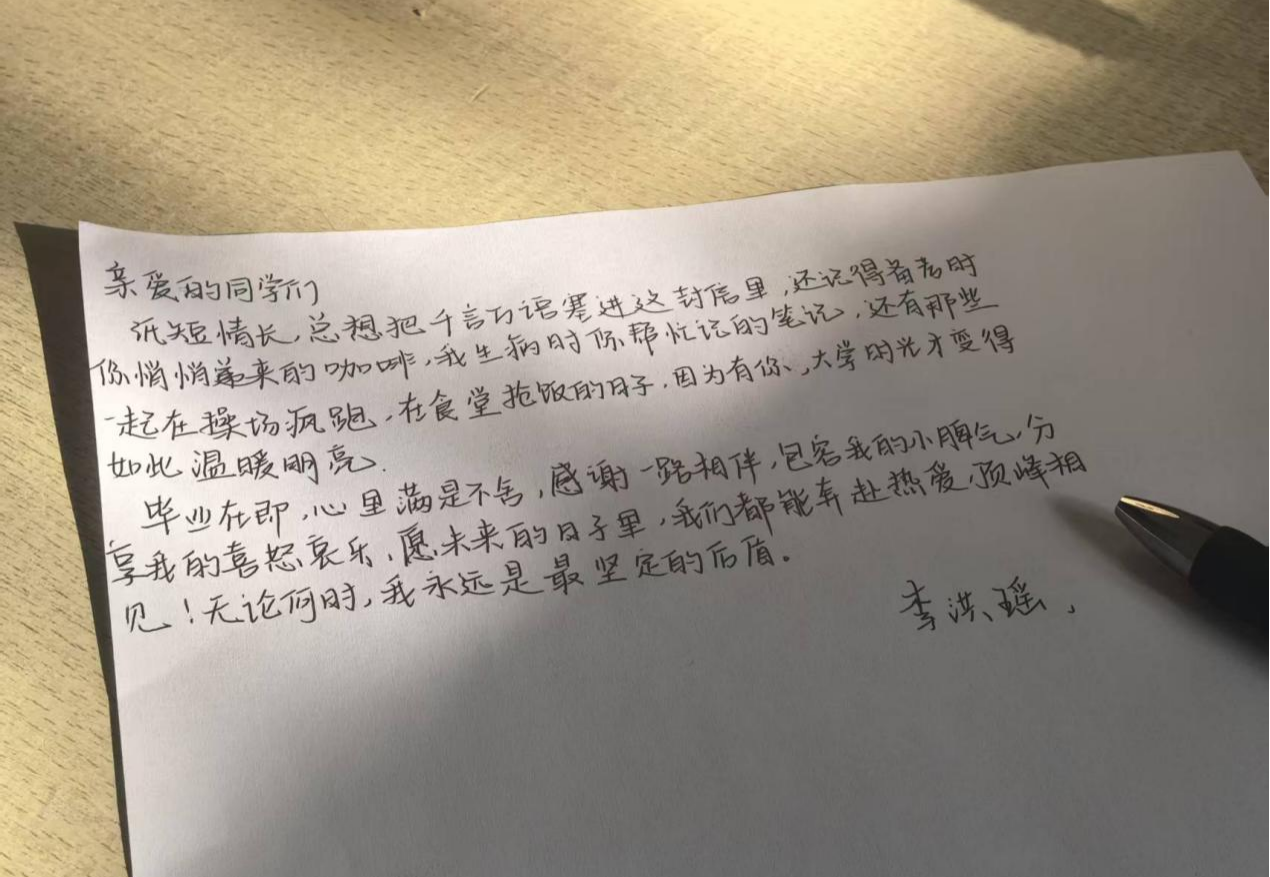 亲爱的同学们
纸短情长,总想把千言万语塞进这封信里,还记得备考时
你悄悄递来的咖啡,我生病时你帮忙记的笔记,还有那些
一起在操场疯跑,在食堂抢饭的日子,因为有你,大学时光才变得
如此温暖明亮.
毕业在即,心里满是不舍,感谢一路相伴,包容我的小脾气,分
享我的喜怒哀乐,愿未来的日子里,我们都能奔赴热爱,顶峰相
见!无论何时,我永远是最坚定的后盾。
李洪瑶,